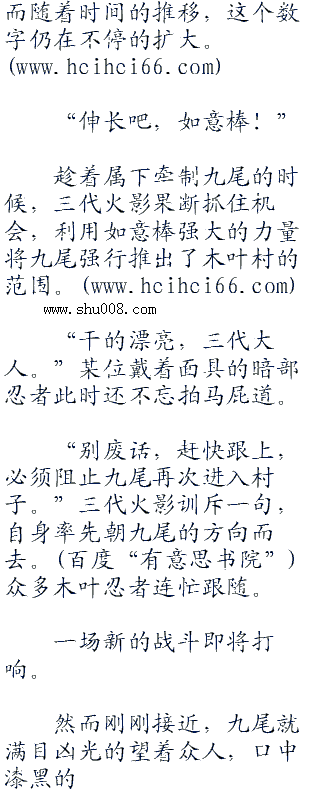 而随着时间的推移，这个数
字仍在不停的扩大。
(www.hcihci66.com)
“伸长吧，如意棒！”
趁着属下牵制九尾的时
候，三代火影果断抓住机
会，利用如意棒强大的力量
将九尾强行推出了木叶村的
范围。(www.hcihci66.com)
www.shu008.com
“干的漂亮，三代大
人。”某位戴着面具的暗部
忍者此时还不忘拍马屁道。
“别废话，赶快跟上，
必须阻止九尾再次进入村
子。”三代火影训斥一句，
自身率先朝九尾的方向而
去。(百度“有意思书院”)
众多木叶忍者连忙跟随。
一场新的战斗即将打
响。
然而刚刚接近，九尾就
满目凶光的望着众人，口中
漆黑的